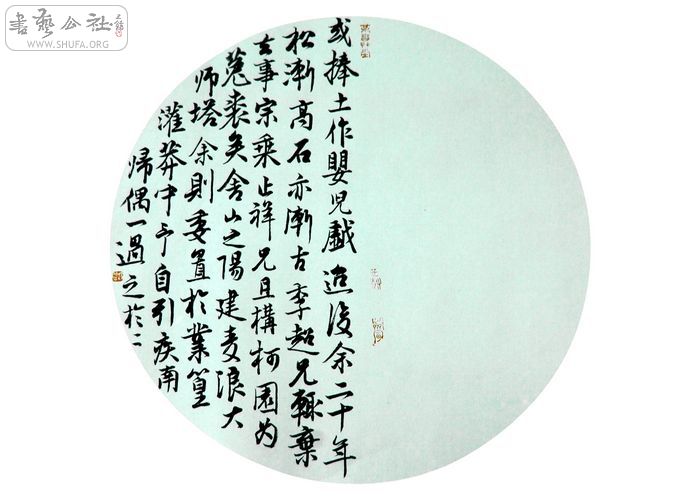 或捧土作嬰兒戲迨後余二十年
松漸高石亦漸古季超兄輒棄
去事宗乘止祥兄且構柯園為
菟裘矣舍山之陽建麦浪大
师塔余則委置於業篁
灌莽中予自引疾南
帰偶一過之於二
書藝公社
WWW.SHUFA.ORG